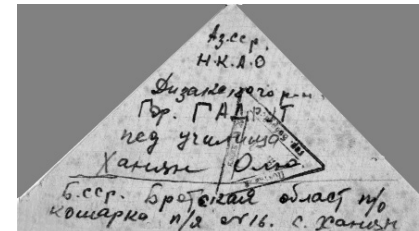 Аз.сср.
Н.К.А.О
Дизакского рай
Гор. ГАДРУТ
пед училища
Ханцян Оля
Б.сср. Братская област п/о
кошарка п/я №16. с. Ханцян